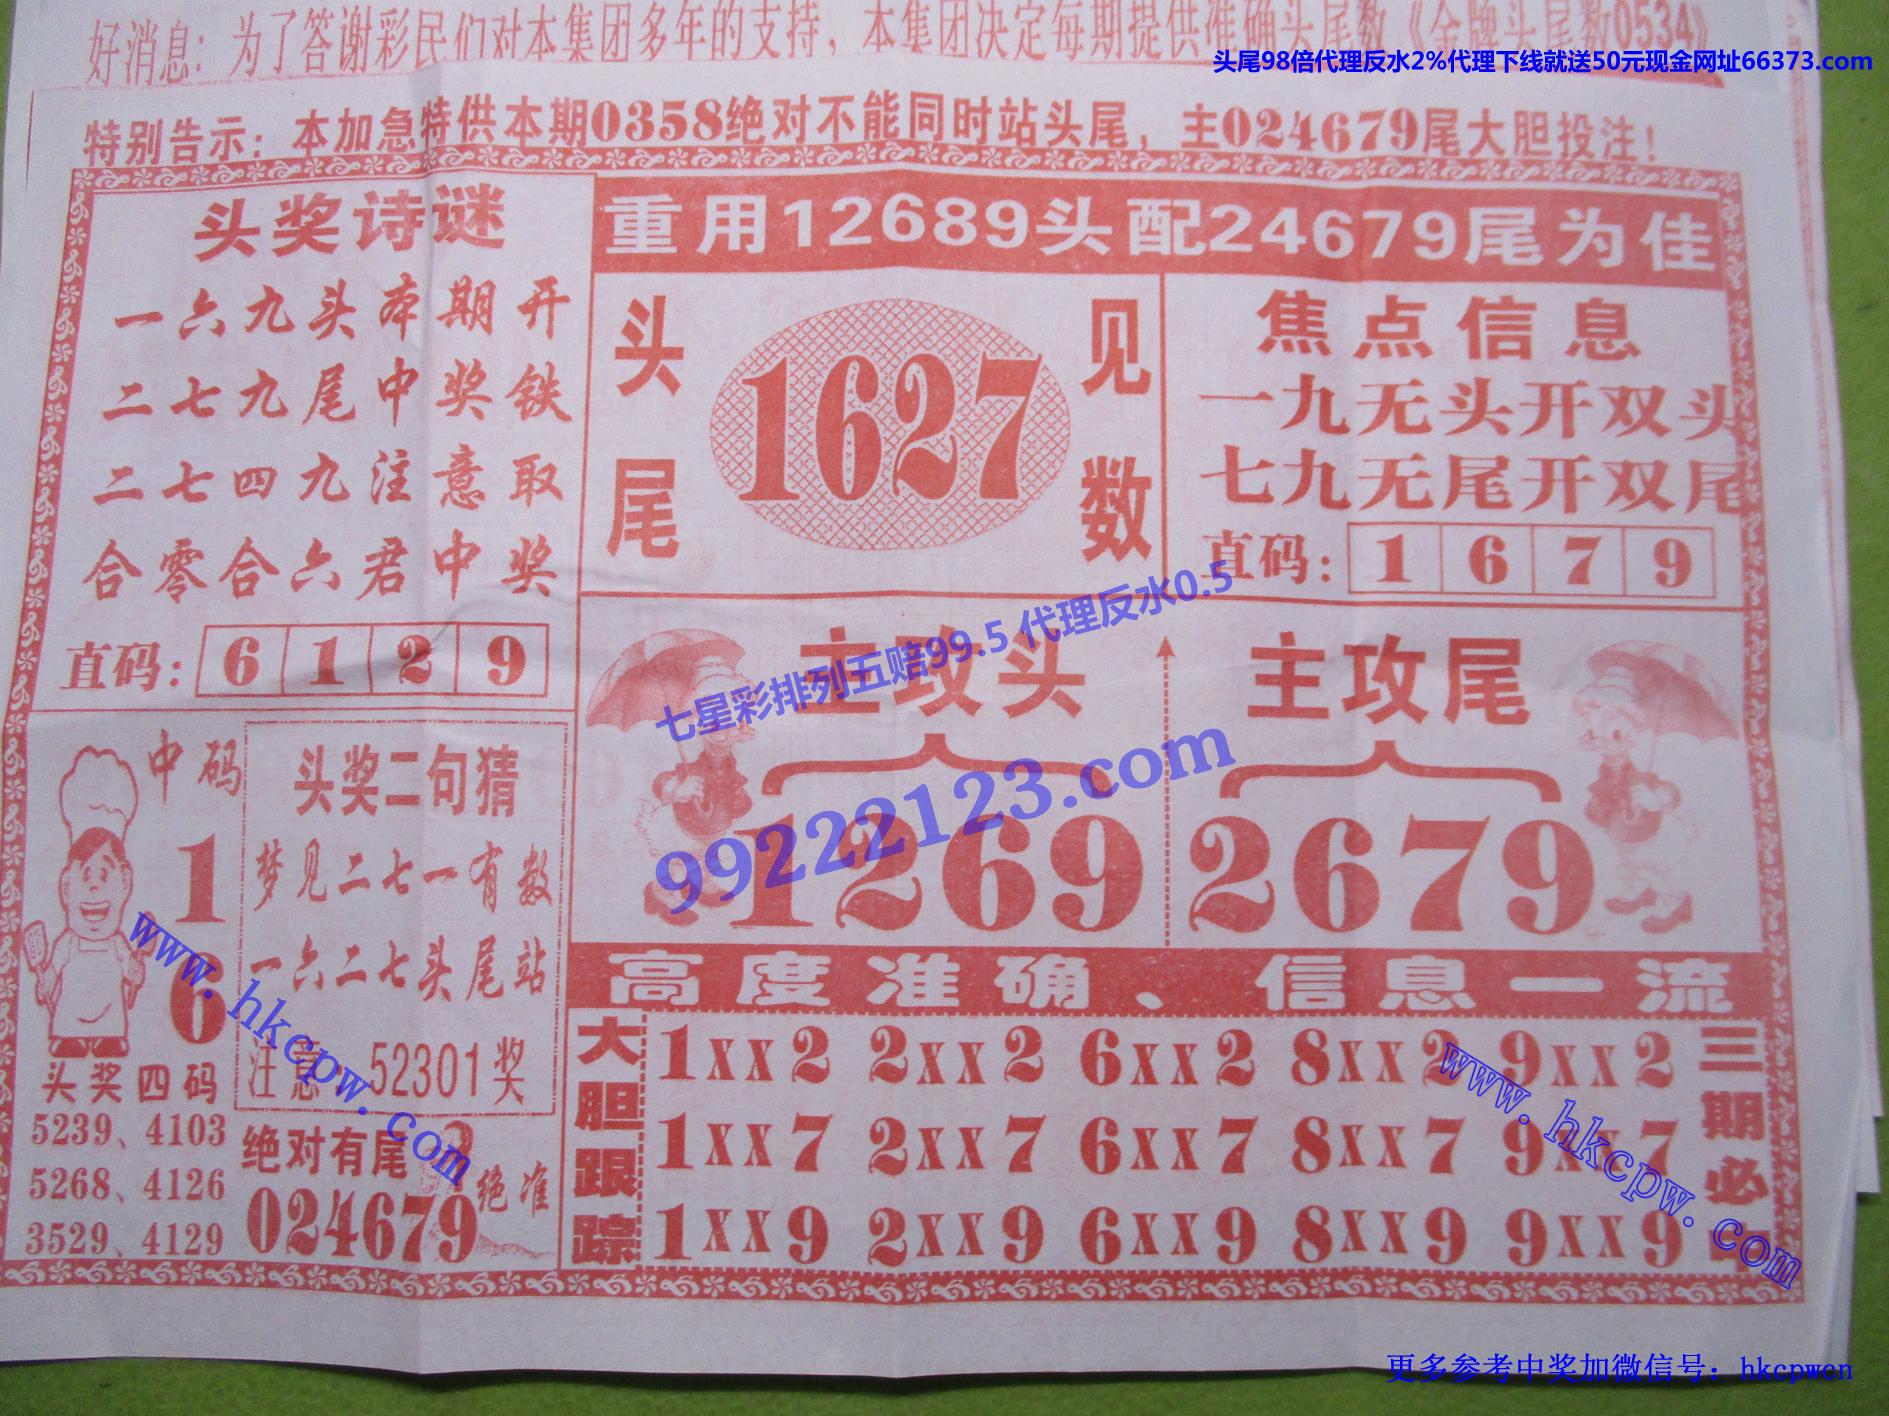 好消息：为了答谢彩民们对本集团多年的支持，本集团决定每期提供准确头尾数《金牌头尾数0534》
头尾98倍代理反水2%代理下线就送50元现金网址66373.com
特别告示：本加急特供本期0358绝对不能同时站头尾，主024679尾大胆投注！
头奖诗谜
一六九头本期开
二七九尾中奖铁
二七四九注意取
合零合六君中奖
直码：6 1 2 9
重用12689头配24679尾为佳
头尾
1627
见数
焦点信息
一九无头开双头
七九无尾开双尾
直码：1 6 7 9
七星彩排列五赔99.5 代理反水0.5
99222123.com
主攻头
1269
主攻尾
2679
中码
1
6
头奖四码
5239、4103
5268、4126
3529、4129
头奖二句猜
梦见二七一有数
一六二七头尾站
注意：52301奖
绝对有尾
024679
绝准
高度准确、信息一流
大胆跟踪
1xx2 2xx2 6xx2 8xx2 9xx2
1xx7 2xx7 6xx7 8xx7 9xx7
1xx9 2xx9 6xx9 8xx9 9xx9
三期必中
www.hkcpw.com
www.hkcpw.com
更多参考中奖加微信号：hkcpwcn